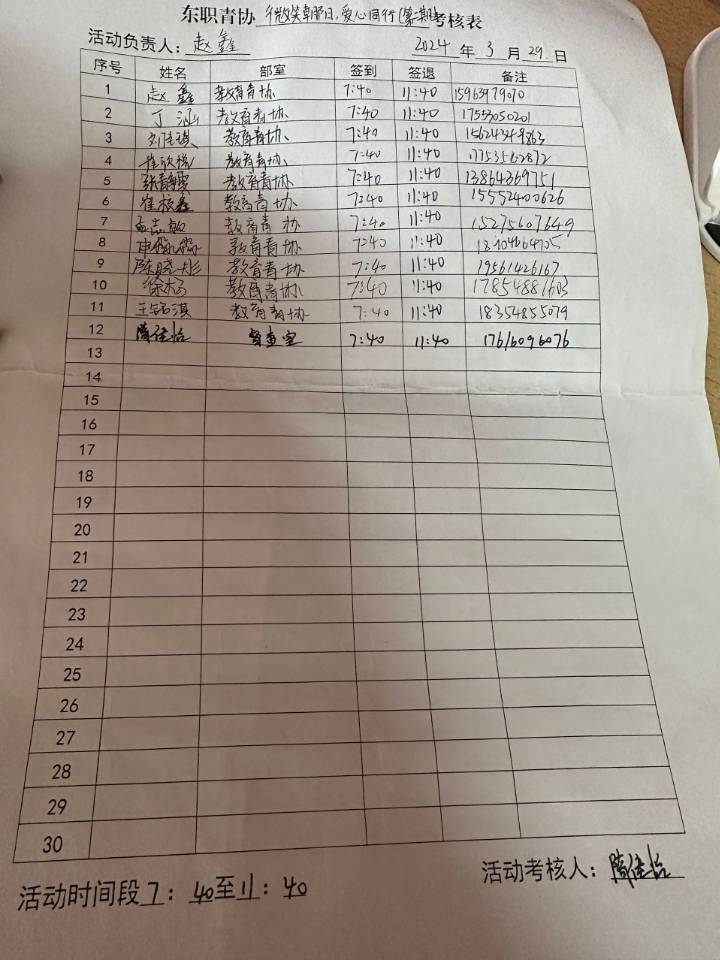 东职青协 微笑朝阳,爱心同行(第一期)考核表
活动负责人: 赵鑫 2024 年 3 月 29 日
序号 姓名 部室 签到 签退 备注
1 赵鑫 教育青协 7:40 11:40 15963979070
2 丁涵 教育青协 7:40 11:40 17553050201
3 教育青协 7:40 11:40
4 教育青协 7:40 11:40 17753562872
5 教育青协 7:40 11:40 13864369751
6 教育青协 7:40 11:40 15552400626
7 教育青协 7:40 11:40 15275607649
8 教育青协 7:40 11:40
9 陈晓彤 教育青协 7:40 11:40 19561426167
10 教育青协 7:40 11:40 17854881603
11 王铭淇 教育青协 7:40 11:40 18354855079
12 隋佳怡 督查室 7:40 11:40 17616096076
13
14
15
16
17
18
19
20
21
22
23
24
25
26
27
28
29
30
活动时间段 7: 40至11: 40
活动考核人: 隋佳怡